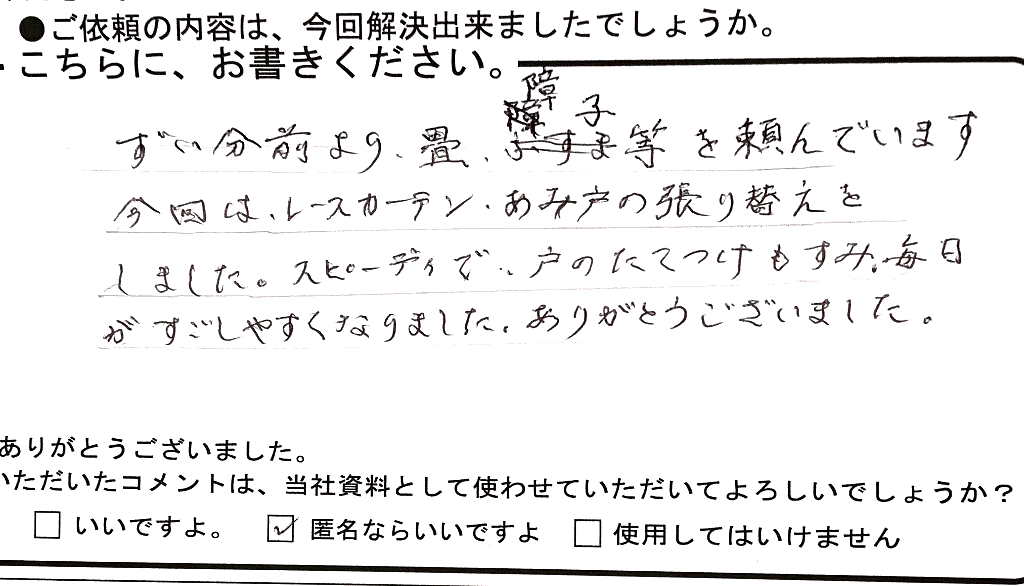 ●ご依頼の内容は、今回解決出来ましたでしょうか。
こちらに、お書きください。
障子
ずい分前より、畳、ふすま等を頼んでいます
今回は、レースカーテン、あみ戸の張り替えを
しました。スピーディで、戸のたてつけもすみ、毎日
がすごしやすくなりました。ありがとうございました。
ありがとうございました。
いただいたコメントは、当社資料として使わせていただいてよろしいでしょうか？
いいですよ。 匿名ならいいですよ 使用してはいけません